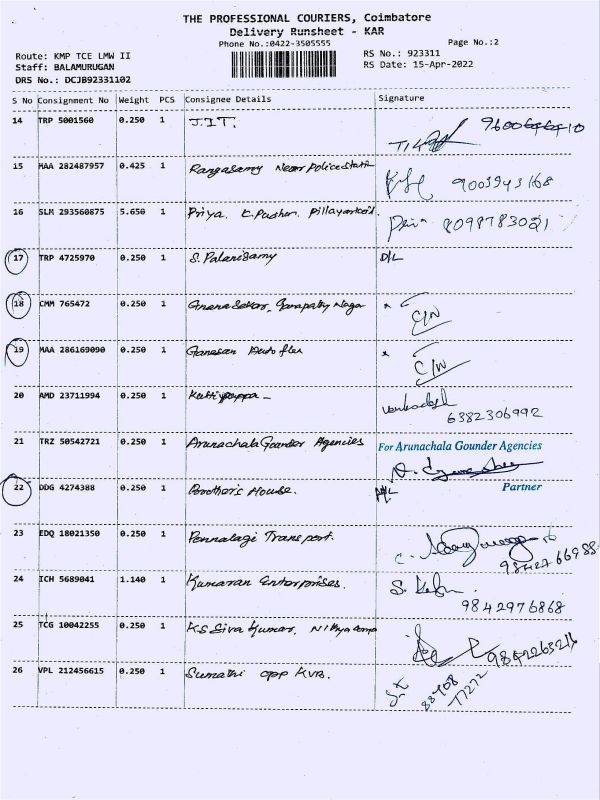 THE PROFESSIONAL COURIERS, Coimbatore
Delivery Runsheet - KAR
Phone No.:0422-3505555
Page No.:2
Route: KMP TCE LMW II
RS No.: 923311
Staff: BALAMURUGAN
RS Date: 15-Apr-2022
DRS No.: DCJB92331102
S No Consignment No Weight PCS Consignee Details Signature
14 TRP 5001560 0.250 1 J.I.T.
15 MAA 282487957 0.425 1 Rangasamy Near Police
9003943168
16 SLM 293560875 5.650 1 Priya.
8098783021
17 TRP 4725970 0.250 1 S. Palanisamy D/L
18 CMM 765472 0.250 1 Gnanasekar, Ganapathy Naga C/N
19 MAA 286169090 0.250 1 Ganesan Auto flex C/W
20 AMD 23711994 0.250 1
6382306992
21 TRZ 50542721 0.250 1 Arunachala Gounder Agencies For Arunachala Gounder Agencies
Partner
22 DDG 4274388 0.250 1 Brother's House. D/L
23 EDQ 18021350 0.250 1 Ponnalagi Transport.
9842766988
24 ICH 5689041 1.140 1 Kumaran Enterprises.
9842976868
25 TCG 10042255 0.250 1 KS Siva Kumar,
26 VPL 212456615 0.250 1 Sumathi opp KVB.
88708
77272